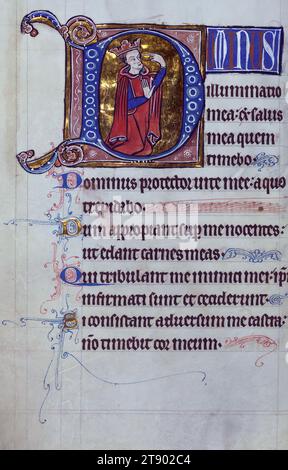 DNUS
illuminatio
mea & salus
mea quem
timebo.
Dominus protector vite mee: a quo
trepidabo.
Dum appropiant sup me nocentes:
ut edant carnes meas.
Qui tribulant me inimici mei: ipi
infirmati sunt et ceciderunt.
Si consistant adversum me castra:
no timebit cor meum.
alamy
Image ID: 2T902C4
www.alamy.com